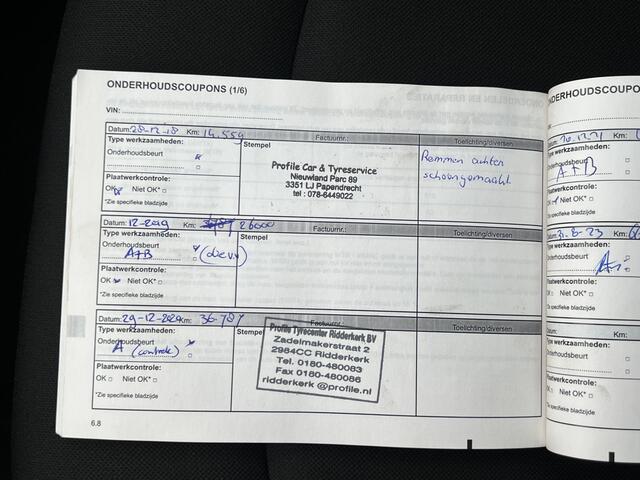 ONDERHOUDSCOUPONS (1/6)
VIN:
Datum: 28-12-18 Km: 14.559 Factuurnr.: Toelichting/diversen
Type werkzaamheden: Stempel
Onderhoudsbeurt
Profile Car & Tyreservice
Nieuwland Parc 89
3351 LJ Papendrecht
tel : 078-6449022
Remmen achter
schoongemaakt
Plaatwerkcontrole:
OK Niet OK*
*Zie specifieke bladzijde
Datum: 12-2019 Km: 26000 Factuurnr.: Toelichting/diversen
Type werkzaamheden: Stempel
Onderhoudsbeurt
A+B
Plaatwerkcontrole:
OK Niet OK*
*Zie specifieke bladzijde
Datum: 29-12-2020 Km: 36-787 Factuurnr.: Toelichting/diversen
Type werkzaamheden: Stempel
Onderhoudsbeurt
A (controle)
Profile Tyrecenter Ridderkerk BV
Zadelmakerstraat 2
2984CC Ridderkerk
Tel. 0180-480083
Fax 0180-480086
ridderkerk @profile.nl
Plaatwerkcontrole:
OK Niet OK*
*Zie specifieke bladzijde
6.8
NDERHOUDSCOUPONS
Type werkzaamheden:
Onderhoudsbeurt
A+B
Plaatwerkcontrole:
OK Niet OK*
*Zie specifieke bladzijde
Type werkzaamheden:
Onderhoudsbeurt
Plaatwerkcontrole:
OK Niet OK*
*Zie specifieke bladzijde
Datum:
Type werkzaamheden:
Onderhoudsbeurt
Plaatwerkcontrole:
OK Niet OK*
*Zie specifieke bladzijde